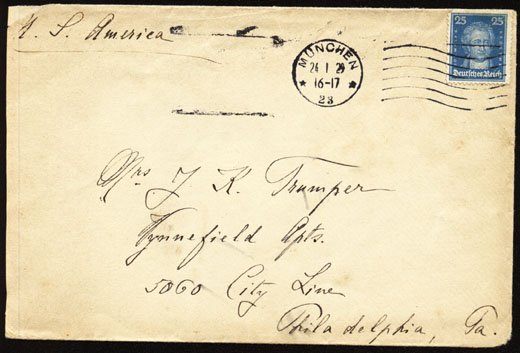 U. S. America
MÜNCHEN
24 1 29
16-17
23
25 25
Deutsches Reich
Mrs J K. Trumper
Wynnefield Apts.
5060 City Line
Philadelphia, Pa.